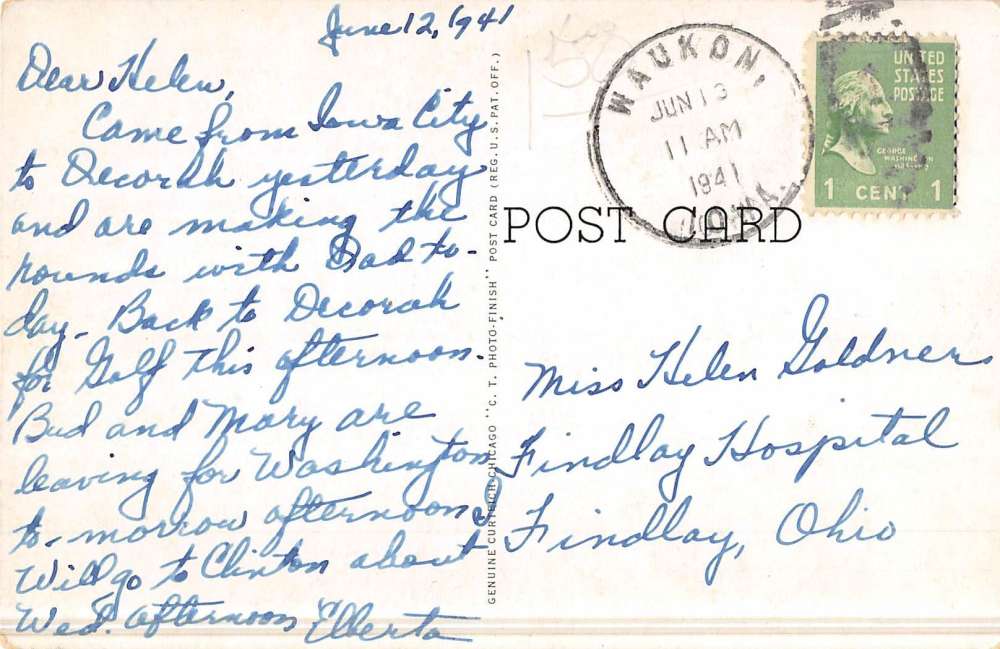 June 12, 1941
Dear Helen,
Came from Iowa City
to Decorah yesterday
and are making the
rounds with Dad to-
day - Back to Decorah
for Golf this afternoon.
Bud and Mary are
leaving for Washington
to-morrow afternoon
Will go to Clinton about
Wed. afternoon Elberta
GENUINE CURTEICH-CHICAGO "C. T. PHOTO-FINISH" POST CARD (REG. U. S. PAT. OFF.)
WAUKON,
JUN 13
11 AM
1941
IOWA.
UNITED
STATES
POSTAGE
GEORGE
WASHINGTON
1 CENT 1
POST CARD
Miss Helen Goldner
Findlay Hospital
Findlay, Ohio